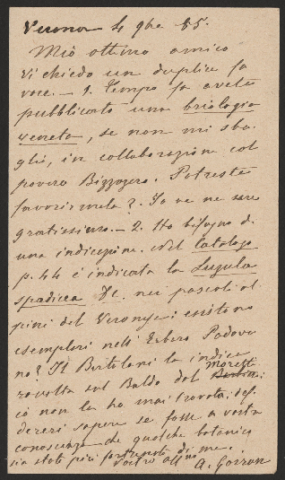 Verona 4 9bre 85.
Mio ottimo amico
Vi chiedo un duplice fa
vore. — 1. Tempo fa avete
pubblicato una briologia
veneta, se non mi sba
glio, in collaborazione col
povero Bizzozero. Potreste
favorirmela? Io ve ne sarò
gratissimo. — 2. Ho bisogno di
una indicazione. Nel Catalogo
p. 44 è indicata la Luzula
spadicea DC. nei pascoli al
pini del Veronese: esistono
esemplari nell' Erbario Padova
no? Il Bertoloni la indica
raccolta sul Baldo dal Moretti
ció non la ha mai trovata; desi
dererei sapere se fosse a vostra
conoscenza che qualche botanico
sia stato più fortunato di me.
Vostro affmo A. Goiran